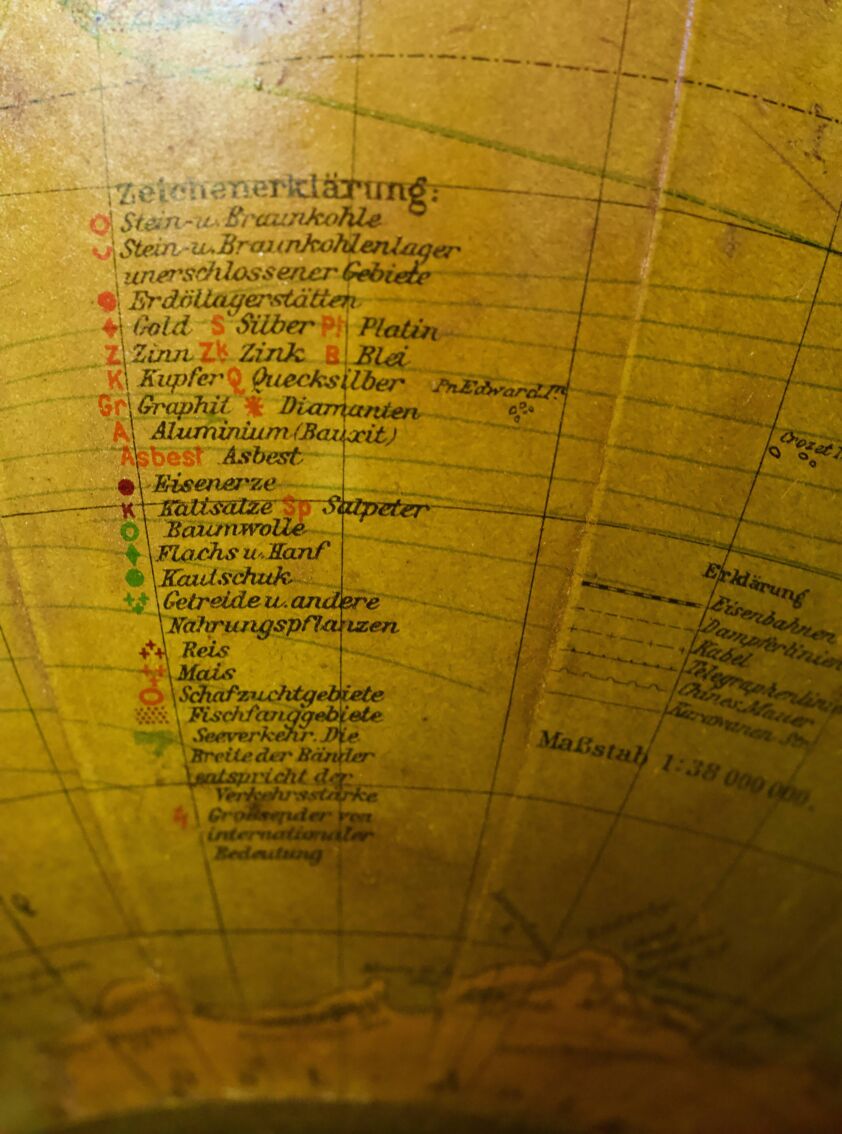 Zeichenerklärung:
Stein-u. Braunkohle
Stein-u. Braunkohlenlager
unerschlossener Gebiete
Erdöllagerstätten
Gold S Silber Pl Platin
Z Zinn Zk Zink B Blei
K Kupfer Q Quecksilber
Gr Graphit Diamanten
A Aluminium (Bauxit)
Asbest Asbest
Eisenerze
K Kalisalze Sp Salpeter
Baumwolle
Flachs u. Hanf
Kautschuk
Getreide u. andere
Nahrungspflanzen
Reis
Mais
Schafzuchtgebiete
Fischfanggebiete
Seeverkehr. Die
Breite der Bänder
entspricht der
Verkehrsstärke
Großsender von
internationaler
Bedeutung
Pr. Edward In
Crozet I
Erklärung
Eisenbahnen
Dampferlinien
Kabel
Telegraphenlinie
Chines. Mauer
Karawanen Str
Maßstab 1:38 000 000.